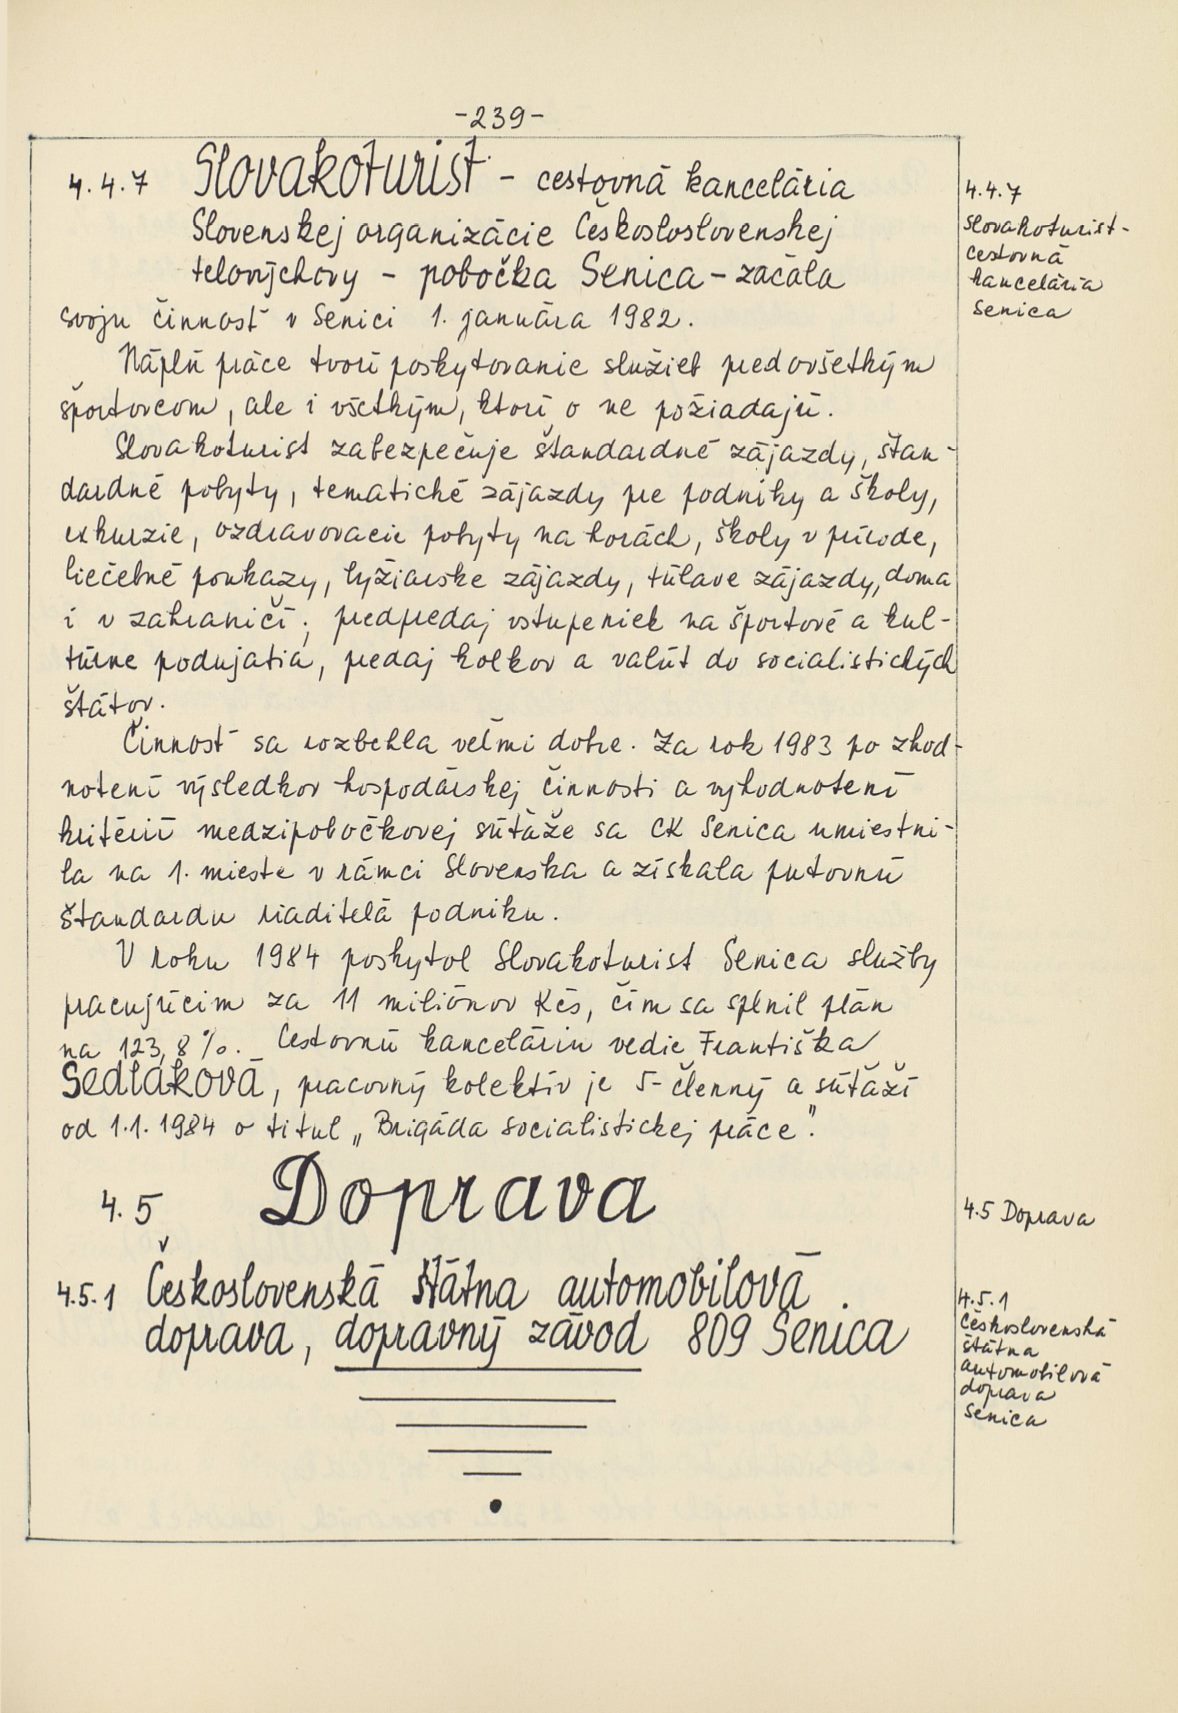 -239-
4.4.7 Slovakoturist - cestovná kancelária
Slovenskej organizácie Československoslovenskej
telovýchovy - pobočka Senica - začala
svoju činnosť v Senici 1. januára 1982.
Náplň práce tvorí poskytovanie služieb predovšetkým
športovcom, ale i všetkým, ktorí o ne požiadajú.
Slovakoturist zabezpečuje štandardné zájazdy, štan-
dardné pobyty, tematické zájazdy pre podniky a školy,
exkurzie, ozdravovacie pobyty na horách, školy v prírode,
liečebné poukazy, lyžiarske zájazdy, túlavé zájazdy, doma
i v zahraničí; predpredaj vstupeniek na športové a kul-
túrne podujatia, predaj kolkov a valút do socialistických
štátov.
Činnosť sa rozbehla veľmi dobre. Za rok 1983 po zhod-
notení výsledkov hospodárskej činnosti a vyhodnotení
kritérií medzipobočkovej súťaže sa CK Senica umiestni-
la na 1. mieste v rámci Slovenska a získala putovnú
štandardu riaditeľa podniku.
V roku 1984 poskytol Slovakoturist Senica služby
pracujúcim za 11 miliónov Kčs, čím sa splnil plán
na 123,8%. Cestovnú kanceláriu vedie Františka
Sedláková, pracovný kolektív je 5-členný a súťaží
od 1.1.1984 o titul „Brigáda socialistickej práce".
4.5 Doprava
4.5.1 Československá štátna automobilová
doprava, dopravný závod 809 Senica
4.4.7
Slovakoturist-
cestovná
kancelária
Senica
4.5 Doprava
4.5.1
Československá
štátna
automobilová
doprava
Senica